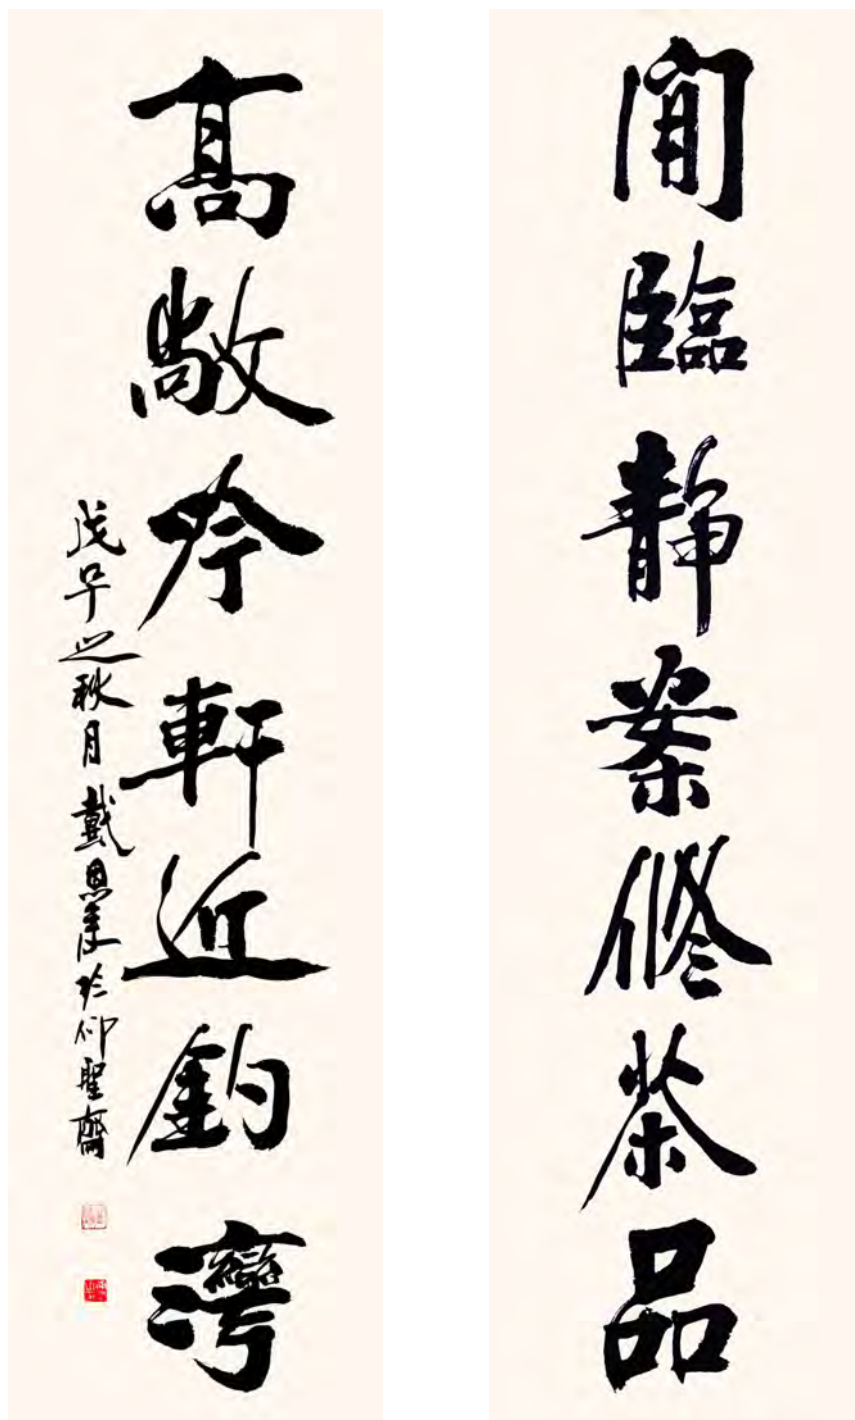 閒臨靜案修茶品
高敞吟軒近釣灣
戊子之秋月戴恩來於仰聖齋